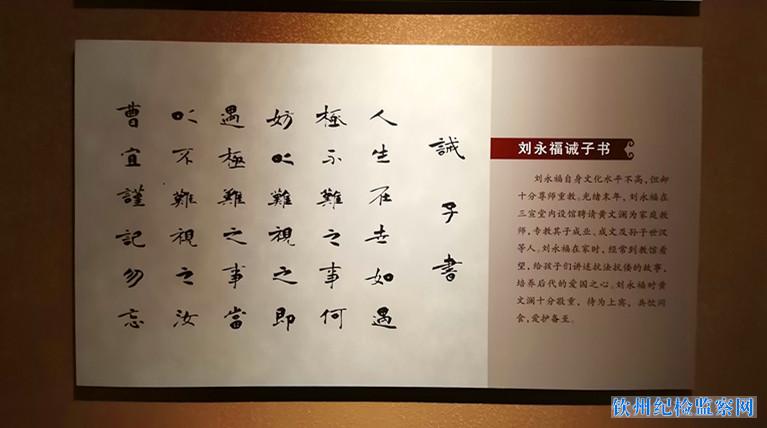 誡子書
人生在世如遇
極不難之事何
妨以難視之即
遇極難之事當
以不難視之汝
曹宜謹記勿忘
刘永福诫子书
刘永福自身文化水平不高，但却
十分尊师重教。光绪末年，刘永福在
三宣堂内设馆聘请黄文澜为家庭教
师，专教其子成业、成文及孙子世汉
等人。刘永福在家时，经常到教馆看
望，给孩子们讲述抗法抗倭的故事，
培养后代的爱国之心。刘永福对黄
文澜十分敬重，待为上宾，共饮同
食，爱护备至。
钦州纪检监察网